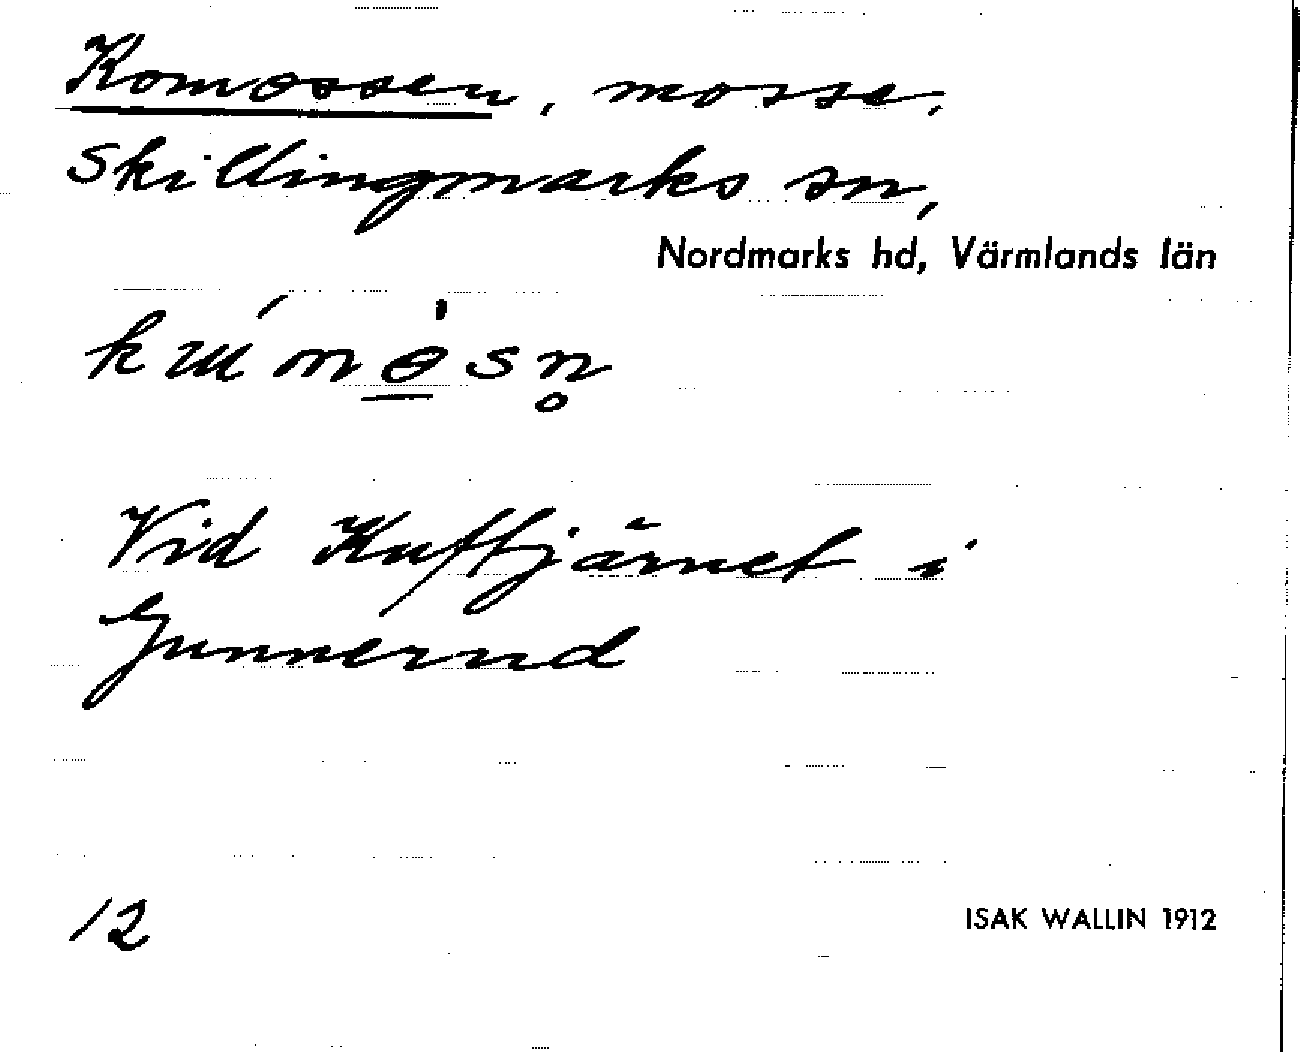 Komossen, mosse,
Skillingmarks sn,
Nordmarks hd, Värmlands län
Vid Kuttjärnet i
Gunnerud
12
ISAK WALLIN 1912